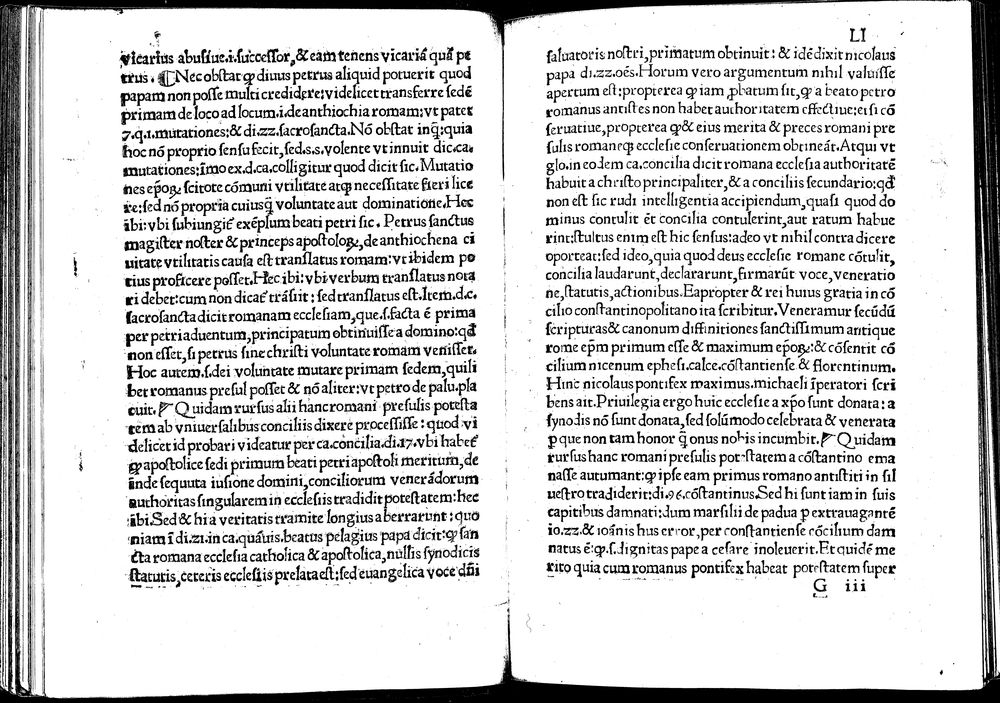 vicarius abusiue.i.successor, & eam tenens vicariā quā pe
trus. ¶Nec obstat ꝙ diuus petrus aliquid potuerit quod
papam non posse multi credidere: videlicet transferre sedē
primam de loco ad locum.i.de anthiochia romam: vt patet
7.q.1.mutationes: & di.zz.sacrosancta. Nō obstat inq̄: quia
hoc nō proprio sensu fecit, sed.s.s.volente vt innuit dic.ca.
mutationes: īmo ex.d.ca.colligitur quod dicit sic. Mutatio
nes epōꝝ scitote cōmuni vtilitate atqꝫ necessitate fieri lice
re: sed nō propria cuiusq̄ voluntate aut dominatione. Hec
ibi: vbi subiungit̄ exēplum beati petri sic. Petrus sanctus
magister noster & princeps apostoloꝝ, de anthiochena ci
uitate vtilitatis causa est translatus romam: vt ibidem po
tius proficere posset. Hec ibi: vbi verbum translatus nota
ri debet: cum non dicat̄ trāsiit: sed translatus est. Item.d.c.
sacrosancta dicit romanam ecclesiam, que.s.facta ē prima
per petri aduentum, principatum obtinuisse a domino: qd̄
non esset, si petrus sine christi voluntate romam venisset.
Hoc autem.s.dei voluntate mutare primam sedem, quili
bet romanus presul posset & nō aliter: vt petro de palu.pla
cuit. ¶Quidam rursus alii hanc romani presulis potesta
tem ab vniuersalibus conciliis dixere processisse: quod vi
delicet id probari videatur per ca.concilia.di.17.vbi habet̄
ꝙ apostolice sedi primum beati petri apostoli meritum, de
inde sequuta iussione domini, conciliorum venerādorum
authoritas singularem in ecclesiis tradidit potestatem: hec
ibi. Sed & hi a veritatis tramite longius aberrarunt: quo
niam ī di.zi.in ca.quāuis.beatus pelagius papa dicit: ꝙ san
cta romana ecclesia catholica & apostolica, nullis synodicis
statutis, ceteris ecclesiis prelata est: sed euangelica voce dn̄i
LI
saluatoris nostri, primatum obtinuit: & idē dixit nicolaus
papa di.zz.oēs. Horum vero argumentum nihil valuisse
apertum est: propterea ꝙ iam ꝓbatum sit, ꝙ a beato petro
romanus antistes non habet authoritatem effectiue: etsi cō
seruatiue, propterea ꝙ & eius merita & preces romani pre
sulis romaneqꝫ ecclesie conseruationem obtineāt. Atqui vt
glo.in eodem ca.concilia dicit romana ecclesia authoritatē
habuit a christo principaliter, & a conciliis secundario: qd̄
non est sic rudi intelligentia accipiendum, quasi quod do
minus contulit et̄ concilia contulerint, aut ratum habue
rint: stultus enim est hic sensus: adeo vt nihil contra dicere
oporteat: sed ideo, quia quod deus ecclesie romane cōtulit,
concilia laudarunt, declararunt, firmarūt voce, veneratio
ne, statutis, actionibus. Eapropter & rei huius gratia in cō
cilio constantinopolitano ita scribitur. Veneramur secūdū
scripturas & canonum diffinitiones sanctissimum antique
rome ep̄m primum esse & maximum epōꝝ: & cōsentit cō
cilium nicenum ephesi.calce.cōstantiense & florentinum.
Hinc nicolaus pontifex maximus.michaeli īperatori scri
bens ait. Priuilegia ergo huic ecclesie a xp̄o sunt donata: a
synodis nō sunt donata, sed solūmodo celebrata & venerata
ꝑ que non tam honor q̄ onus nobis incumbit. ¶Quidam
rursus hanc romani presulis potestatem a cōstantino ema
nasse autumant: ꝙ ipse eam primus romano antistiti in sil
uestro tradiderit: di.96.cōstantinus. Sed hi sunt iam in suis
capitibus damnati: dum marsilii de padua ꝑ extrauagantē
io.zz.& ioānis hus error, per constantiense cōcilium dam
natus ē: ꝙ.s.dignitas pape a cesare inoleuerit. Et quidē me
rito quia cum romanus pontifex habeat potestatem super
G iii